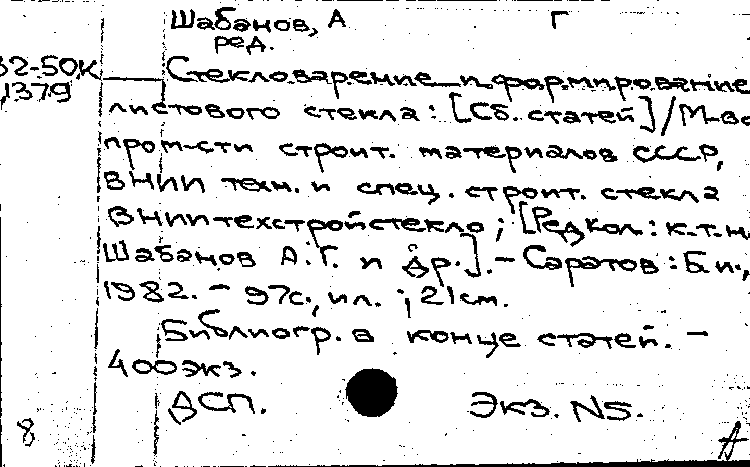 Шабанов, А Г
ред.
32-50К Стекловарение и формирование
1379 листового стекла: [Сб. статей] / М-во
пром-сти строит. материалов СССР,
ВНИИ техн. и спец. строит. стекла
ВНИИтехстройстекло; [Редкол.: к.т.н.
Шабанов А.Г. и др.]. - Саратов: Б.и.,
1982. - 97с., ил.; 21см.
Библиогр. в конце статей. -
400экз.
ДСП. Экз. N5.
8 А